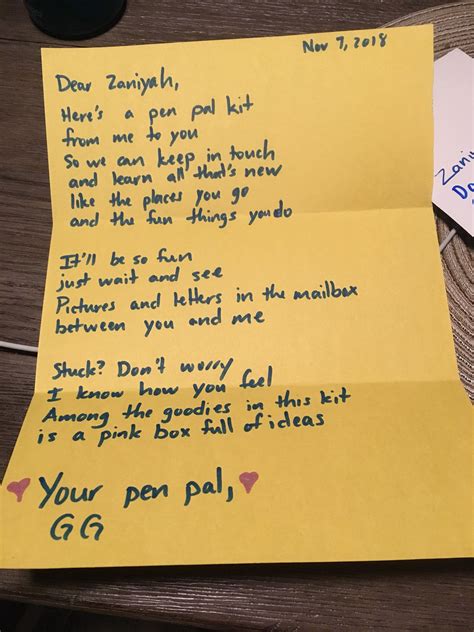 Nov 7, 2018
Dear Zaniyah,
Here's a pen pal kit
from me to you
So we can keep in touch
and learn all that's new
like the places you go
and the fun things you do
It'll be so fun
just wait and see
Pictures and letters in the mailbox
between you and me
Stuck? Don't worry
I know how you feel
Among the goodies in this kit
is a pink box full of ideas
Your pen pal,
GG